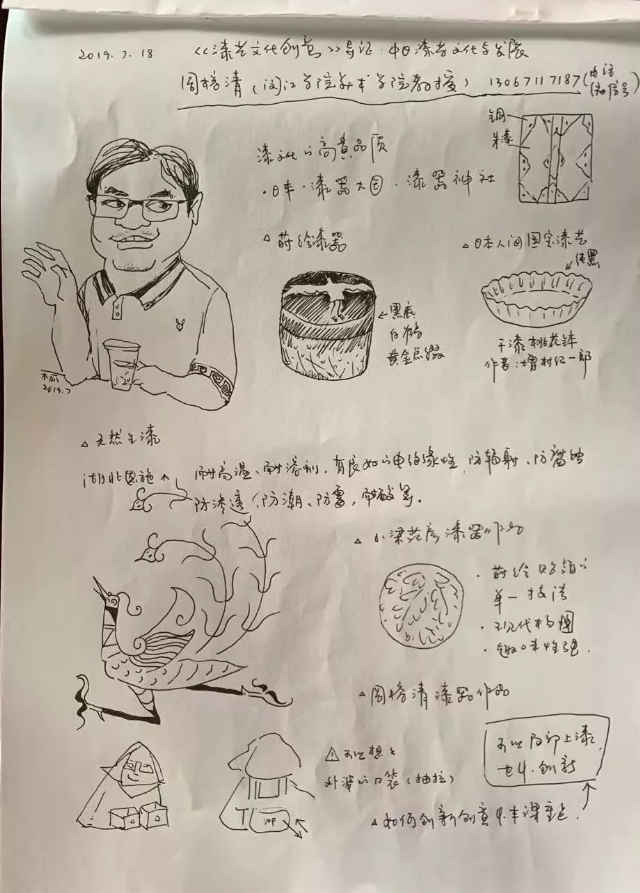 2019.7.18 《漆艺文化创意》导论:中日漆艺文化与发展
周榕清(闽江学院美术学院教授) 13067117187(电话 微信号)
铜
朱漆
漆文化的高贵品质
·日本·漆器大国·漆器神社
△莳绘漆器
△日本人间国宝漆艺
纯黑
←黑底
白鹤
黄金点缀
干漆桃花钵
作者:增村纪一郎
2019.7
△天然生漆
湖北恩施 耐高温、耐溶剂,有良好的电绝缘性、防辐射、防腐蚀
防渗透、防潮、防霉,耐酸等。
△小梁范彦漆器作品
·莳绘
单一技法
·现代构图
·趣味性强.
△周榕清漆器作品
可以想
外婆的口袋(抽拉)
可以局部上漆
也4.创新
△如何创新创意4.本课重点.